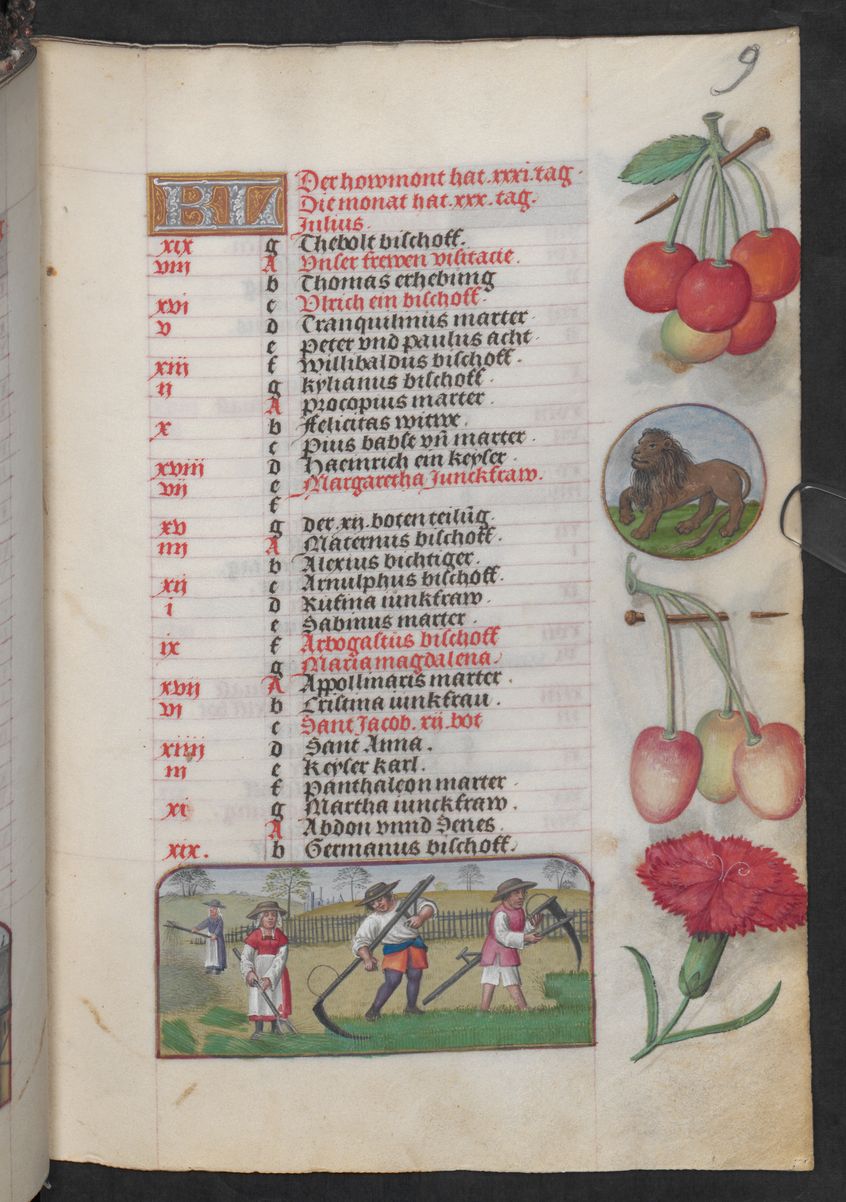 9
KL Der howmont hat .xxxi. tag.
Die monat hat .xxx. tag.
Julius.
xix g Thebolt bischoff.
viij A Vnser frewen visitacie.
b Thomas erhebung
xvi c Vlrich ein bischoff.
v d Tranquilinus marter.
e Peter vnd paulus acht.
xiij f Willibaldus bischoff.
ij g kylianus bischoff.
A procopius marter.
x b ffelicitas witwe.
c Pius babst vn̄ marter.
xviij d Haeinrich ein keyser.
vij e Margaretha Junckfraw.
f
xv g der .xij. boten teilūg.
iiij A Maternus bischoff.
b Alexius bichtiger.
xij c Arnulphus bischoff.
i d Rufina iunkfraw.
e Sabinus marter.
ix f Arbogastus bischoff
g Maria magdalena.
xvij A Appollinaris marter.
vi b Cristina iunkfrau.
c Sant Jacob .xij. bot
xiiij d Sant Anna.
iij e Keyser karl.
f panthaleon marter.
xi g Martha iunckfraw.
A Abdon vnnd Senes.
xix. b Germanus bischoff.